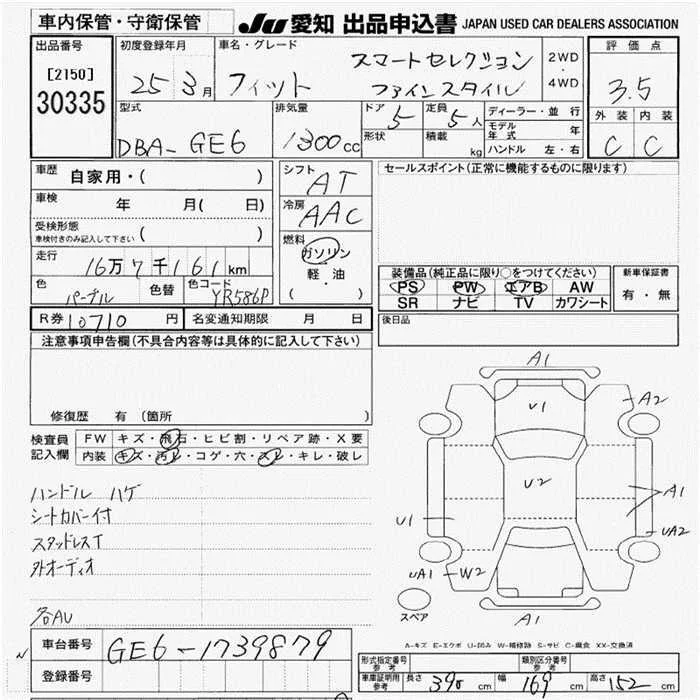 車内保管・守衛保管 JU 愛知 出品申込書 JAPAN USED CAR DEALERS ASSOCIATION
出品番号 [2150] 30335
初度登録年月 25 3月
車名・グレード フィット スマートセレクション ファインスタイル 2WD 4WD
評価点 3.5
外装 内装
C C
型式 DBA-GE6
排気量 1300cc
ドア 5 定員 5人
形状 積載 kg
ディーラー・並行
モデル年式 年
ハンドル 左・右
車歴 自家用・( )
車検 年 月( 日)
受検形態 ( )
車検付きのみ記入して下さい
走行 16万7千161km
色 パープル 色替 色コード YR586P
シフト AT
冷房 AAC
燃料 ガソリン
軽・油
( )
セールスポイント(正常に機能するものに限ります)
装備品(純正品に限り○をつけてください)
PS PW エアB AW
SR ナビ TV カワシート
新車保証書
有・無
R券 10710 円 名変通知期限 月 日
後日品
注意事項申告欄(不具合内容等は具体的に記入して下さい)
修復歴 有 (箇所 )
検査員記入欄
FW キズ・飛石・ヒビ割・リペア跡・X要
内装 キズ・汚レ・コゲ・穴・スレ・キレ・破レ
ハンドル ハゲ
シートカバー付
スタッドレスT
外オーディオ
各AU
A1
U1
A2
U2
A1
U1
UA2
UA1
W2
A1
スペア
A-キズ E-エクボ U-凹み W-補修跡 S-サビ C-腐食 XX-交換済
車台番号 GE6-1739879
登録番号
形式指定番号 参考 類別区分番号 参考
車庫証明用 参考 長さ 390 cm 幅 169 cm 高さ 152 cm